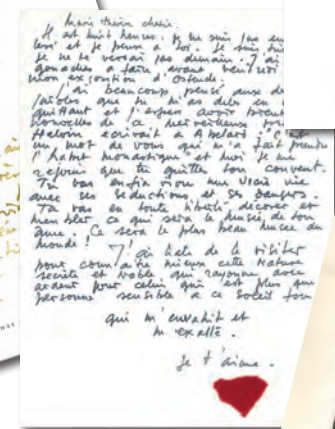 Marie Thérèse chérie.
Il est huit heures. je ne suis pas en
et je pense à toi. Je suis
je ne te verrai pas demain. J'ai
gouaches à faire avant vendredi
mon exposition d'Ostende.
J'ai beaucoup pensé aux
paroles que tu m'as dites en
quittant et j'espère avoir bientôt
nouvelles de ce merveilleux
Héloïse écrivait à Abélard : "C'est
un mot de vous qui m'a fait prendre
l'habit monastique" et moi je me
réjouis que tu quittes ton couvent.
Tu vas enfin vivre une vraie vie
avec ses séductions et ses dangers.
Tu vas en toute liberté décorer et
meubler ce qui sera le musée de ton
âme. Ce sera le plus beau musée du
monde ! J'ai hâte de le visiter
pour connaître mieux cette Nature
secrète et noble qui rayonne avec
ardeur pour celui qui est plus que
personne sensible à ce soleil
qui m'envahit et
m'exalte.
Je t'aime.